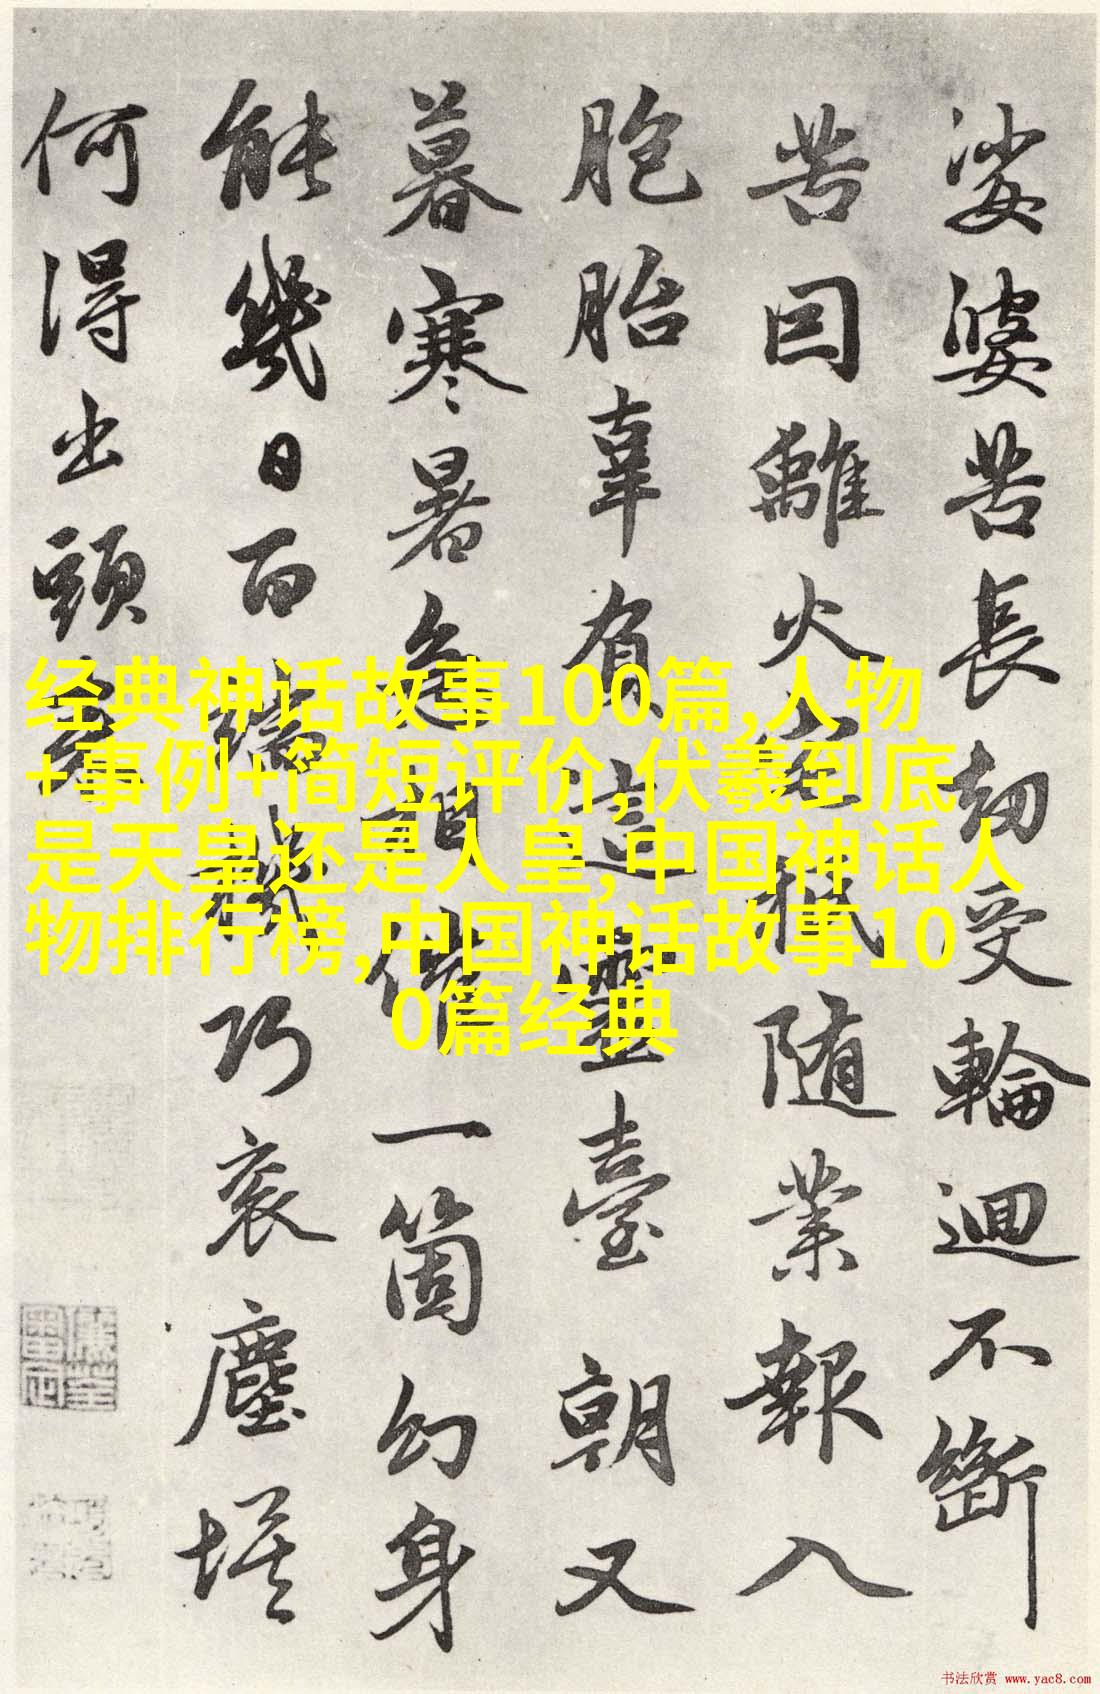 娑婆苦長劫受輪迴不斷
苦因離火宅秪隨業報入
胞胎辜負這靈臺朝又
暮寒暑急相催一箇幻身
能幾日百端機巧衮塵埃
何得出頭來
经典神话故事100篇,人物
+事例+简短评价,伏羲到底
是天皇还是人皇,中国神话人
物排行榜,中国神话故事10
0篇经典
书法欣赏 www.yac8.com